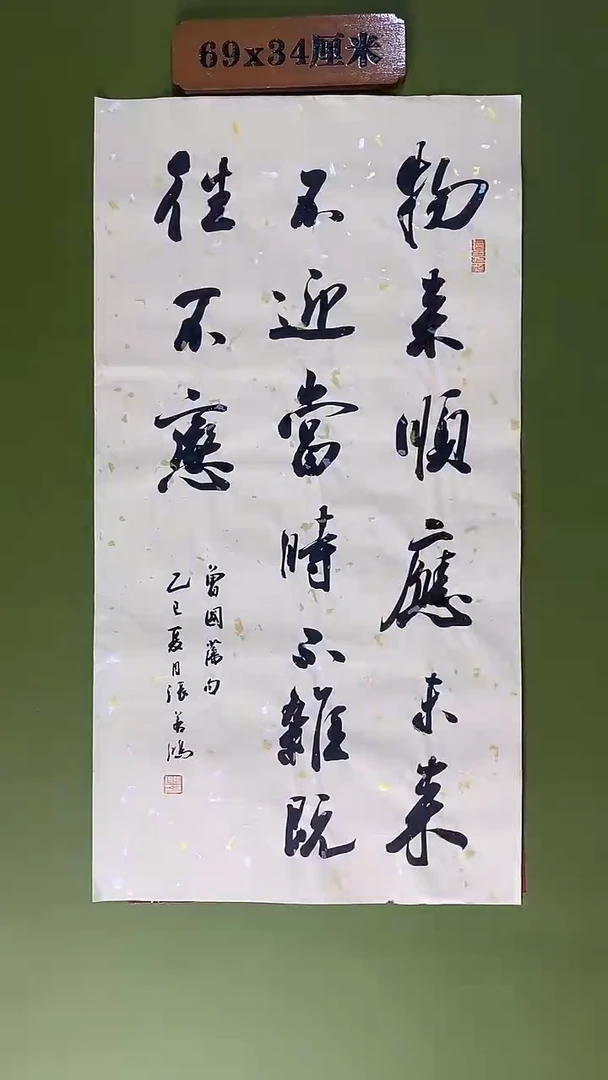 69x34厘米
物来順應未来
不迎當時不雜既
往不戀
曾國藩句
乙巳夏月張